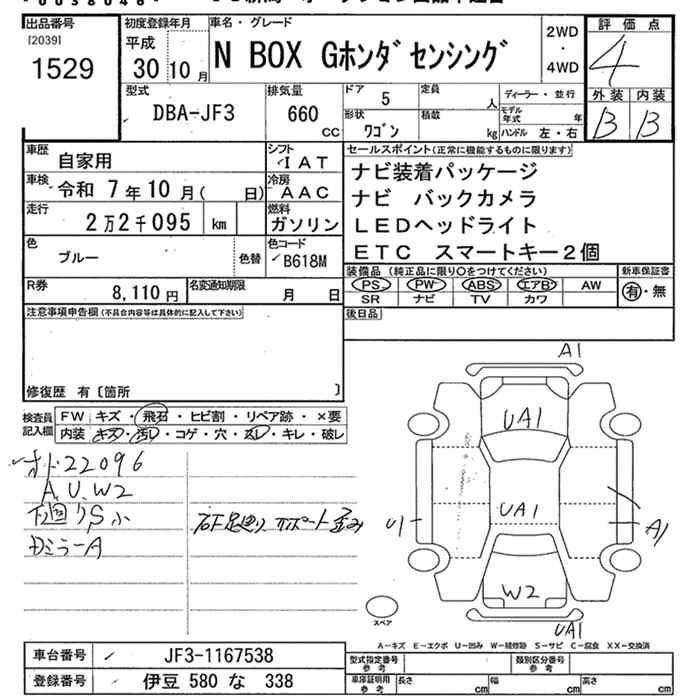 * 0038048 *
出品番号 初度登録年月 車名・グレード 評価点
[2039] 平成 2WD
1529 30 10月 N BOX Gホンダセンシング ・ 4
4WD
型式 排気量 ドア 5 定員 人 ディーラー・並行 外装 内装
DBA-JF3 660 CC 形状 ワゴン 積載 kg モデル年式 年 B B
ハンドル 左・右
車歴 自家用 シフト IAT セールスポイント(正常に機能するものに限ります)
車検 令和 7年10月( 日) 冷房 AAC ナビ装着パッケージ
走行 2万2千095 km 燃料 ガソリン ナビ バックカメラ
LEDヘッドライト
色 ブルー 色替 色コード B618M ETC スマートキー2個
R券 8,110円 名変通知期限 月 日 装備品(純正品に限り○をつけてください) 新車保証書
PS PW ABS エアB AW 有・無
SR ナビ TV カワ
注意事項申告欄(不具合内容等は具体的に記入して下さい) 後日品
修復歴 有〔箇所 〕
検査員記入欄 FW キズ・飛石・ヒビ割・リペア跡・×要
内装 キズ・汚レ・コゲ・穴・スレ・キレ・破レ
オド22096
A.U.W2
下廻りSホ
石足廻り
ミラーA
A1
UA1
UA1
U1
A1
W2
UA1
スペア
A-キズ E-エクボ U-凹み W-補修跡 S-サビ C-腐食 XX-交換済
車台番号 JF3-1167538 型式指定番号 参考 類別区分番号 参考
登録番号 伊豆 580 な 338 車庫証明用 参考 長さ cm 幅 cm 高さ cm